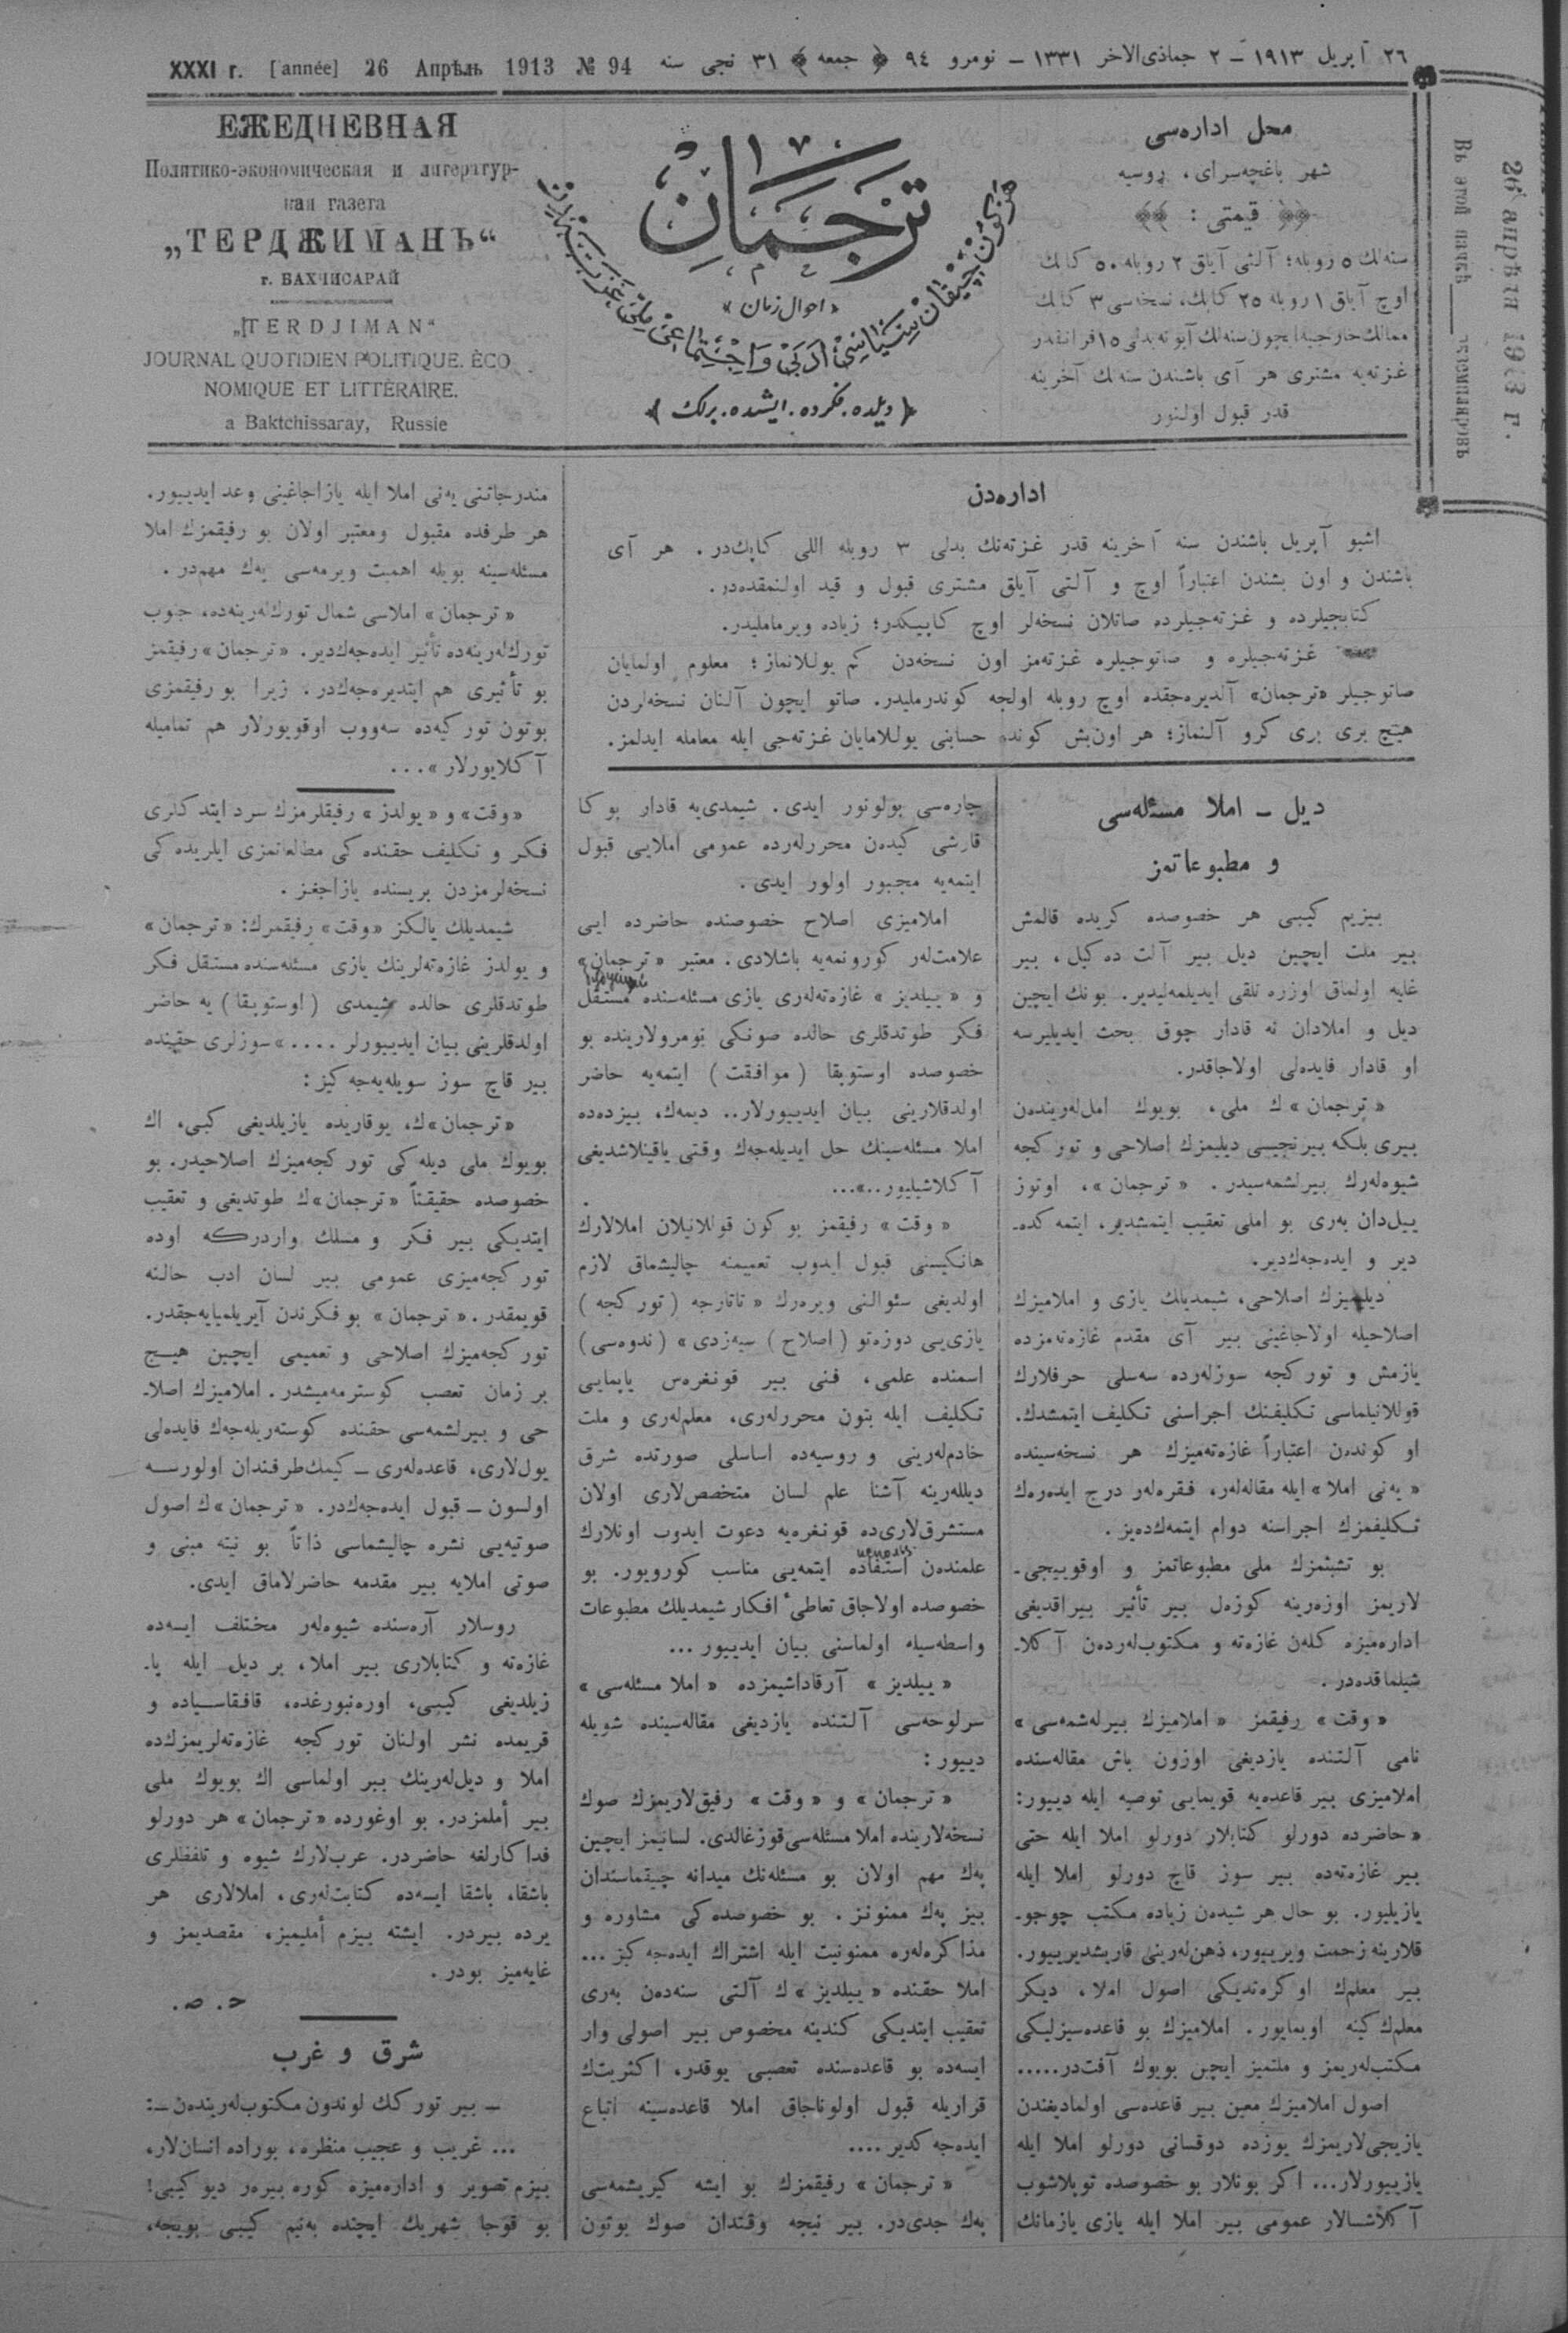 ٢٦ آپریل ١٩١٣ – ٢ جماذی‌الاخر ١٣٣١ – نومرو ٩٤ ﴿ جمعه ﴾ ٣١ نجی سنه
XXXI г. [année] 26 Апрѣль 1913 № 94
محل اداره‌سی
شهر باغچه‌سرای، روسیه
قیمتی :
سنه‌لك ٥ روبله؛ آلتی آیلق ٢ روبله ٥٠ کاپك
اوچ آیلق ١ روبله ٢٥ کاپك، نسخه‌سی ٣ کاپك
ممالك خارجیه ایچون سنه‌لك آبونه بدلی ١٥ فرانقدر
غزته‌یه مشتری هر آی باشندن سنه‌ك آخرینه
قدر قبول اولنور
ترجمان
«احوال زمان»
هرکون چیقان سیاسی، ادبی و اجتماعی ملی
﴿ دیلده. فکرده. ایشده. برلك ﴾
ЕЖЕДНЕВНАЯ
Политико-экономическая и литератур-
ная газета
„ТЕРДЖИМАНЪ“
г. БАХЧИСАРАЙ
„TERDJIMAN“
JOURNAL QUOTIDIEN POLITIQUE. ÈCO
NOMIQUE ET LITTÈRAIRE.
a Baktchissaray, Russie
26 апрѣля 1913 г.
اداره‌دن
اشبو آپریل باشندن سنه آخرینه قدر غزته‌نك بدلی ٣ روبله اللی کاپك‌در. هر آی
باشندن و اون بشندن اعتباراً اوچ و آلتی آیلق مشتری قبول و قید اولنمقده‌در.
کتابجیلرده و غزته‌جیلرده صاتلان نسخه‌لر اوچ کاپیکدر؛ زیاده ویرماملیدر.
غزته‌جیلره و صاتوجیلره غزته‌مز اون نسخه‌دن کم یوللانماز؛ معلوم اولمایان
صاتوجیلر «ترجمان» آلدیره‌جقده اوچ روبله اولجه کوندرملیدر. صاتو ایچون آلنان نسخه‌لردن
هیچ بری بری کرو آلنماز؛ هر اون‌بش کونده حسابنی یوللامایان غزته‌جی ایله معامله ایدلمز.
دیل – املا مسئله‌سی
و مطبوعاتمز
بیزیم کیبی هر خصوصده کریده قالمش
بیر ملت ایچین دیل بیر آلت ده‌کیل، بیر
غایه اولماق اوزره تلقی ایدیلمه‌لیدیر. بونك ایچین
دیل و املادان نه قادار چوق بحث ایدیلیرسه
او قادار فایده‌لی اولاجاقدر.
«ترجمان»ك ملی، بویوك امل‌لەریندەن
بیری بلکه بیرنجیسی دیلیمزك اصلاحی و تورکجه
شیوه‌لەرك بیرلشمه‌سیدر. «ترجمان»، اوتوز
ییل‌دان بەری بو املی تعقیب ایتمشدیر، ایتمه کده‌ـ
دیر و ایده‌جه‌ك‌دیر.
دیلمیزك اصلاحی، شیمدیلك یازی و املامیزك
اصلاحیله اولاجاغینی بیر آی مقدم غازه‌ته‌مزده
یازمش و تورکجه سوزلەرده سه‌سلی حرفلارك
قوللانیلماسی تکلیفنك اجراسنی تکلیف ایتمشدك.
او کوندەن اعتباراً غازه‌ته‌میزك هر نسخه‌سینده
«یەنی املا» ایله مقاله‌لەر، فقره‌لەر درج ایدەرەك
تکلیفمزك اجراسنه دوام ایتمه‌ك‌ده‌یز.
بو تشبثمزك ملی مطبوعاتمز و اوقوییجی‌ـ
لاریمز اوزەرینه کوزەل بیر تأثیر بیراقدیغی
اداره‌میزه کلەن غازه‌ته و مکتوب‌لەردەن آکلاـ
شیلماقده‌در.
«وقت» رفیقمز «املامیزك بیرلەشمه‌سی»
نامی آلتنده یازدیغی اوزون باش مقاله‌سنده
املامیزی بیر قاعده‌یه قویمایی توصیه ایله دییور:
«حاضرده دورلو کتابلار دورلو املا ایله حتی
بیر غازه‌ته‌ده بیر سوز قاچ دورلو املا ایله
یازیلیور. بو حال هر شیدەن زیاده مکتب چوجوـ
قلارینه زحمت ویرییور، ذهن‌لەرینی قاریشدیرییور.
بیر معلمك اوکره‌تدیکی اصول املا، دیکر
معلمك کینه اویمایور. املامیزك بو قاعده‌سیزلیکی
مکتب‌لەریمز و ملتمیز ایچین بویوك آفت‌در.....
اصول املامیزك معین بیر قاعده‌سی اولمادیغندن
یازیجی‌لاریمزك یوزده دوقسانی دورلو املا ایله
یازییورلار... اکر بونلار بو خصوصده توپلاشوب
آکلاشالار عمومی بیر املا ایله یازی یازمانك
چاره‌سی بولونور ایدی. شیمدی‌یه قادار بوکا
قارشی کیدەن محررلەرده عمومی املایی قبول
ایتمه‌یه مجبور اولور ایدی.
املامیزی اصلاح خصوصنده حاضرده ایی
علامت‌لەر کورونمه‌یه باشلادی. معتبر «ترجمان»
و «ییلدیز» غازه‌ته‌لەری یازی مسئله‌سنده مستقل
فکر طوتدقلری حالده صونکی نومرولارینده بو
خصوصده اوستوپقا (موافقت) ایتمه‌یه حاضر
اولدقلارینی بیان ایدییورلار.. دیمه‌ك، بیزده‌ده
املا مسئله‌سینك حل ایدیله‌جه‌ك وقتی یاقینلاشدیغی
آکلاشیلیور..»...
«وقت» رفیقمز بوکون قوللانیلان املالارك
هانکیسنی قبول ایدوب تعمیمنه چالیشماق لازم
اولدیغی سئوالنی ویرەرك «تاتارجه (تورکجه)
یازی‌یی دوزه‌تو (اصلاح) سیه‌زدی» (ندوه‌سی)
اسمنده علمی، فنی بیر قونغره‌س یاپمایی
تکلیف ایله بتون محررلەری، معلم‌لەری و ملت
خادم‌لەرینی و روسیه‌ده اساسلی صورتده شرق
دیللەرینه آشنا علم لسان متخصص‌لاری اولان
مستشرق‌لاری‌ده قونغره‌یه دعوت ایدوب اونلارك
علمندەن استفاده ایتمه‌یی مناسب کورویور. بو
خصوصده اولاجاق تعاطیٔ افکار شیمدیلك مطبوعات
واسطه‌سیله اولماسنی بیان ایدییور ...
«ییلدیز» آرقاداشیمزده «املا مسئله‌سی»
سرلوحه‌سی آلتنده یازدیغی مقاله‌سینده شویله
دییور:
«ترجمان» و «وقت» رفیق‌لاریمزك صوك
نسخه‌لارینده املا مسئله‌سی قوزغالدی. لسانیمز ایچین
پەك مهم اولان بو مسئله‌نك میدانه چیقماسندان
بیز پەك ممنونز. بو خصوصده‌کی مشاوره و
مذاکره‌لەره ممنونیت ایله اشتراك ایده‌جه کیز ...
املا حقنده «ییلدیز»ك آلتی سنه‌دەن بەری
تعقیب ایتدیکی کندینه مخصوص بیر اصولی وار
ایسه‌ده بو قاعده‌سنده تعصبی یوقدر، اکثریت‌ك
قراریله قبول اولوناجاق املا قاعده‌سینه اتباع
ایده‌جه کدیر ....
«ترجمان» رفیقمزك بو ایشه کیریشمه‌سی
پەك جدی‌در. بیر نیجه وقتدان صوك بوتون
مندرجاتنی یەنی املا ایله یازاجاغینی وعد ایدییور.
هر طرفده مقبول ومعتبر اولان بو رفیقمزك املا
مسئله‌سینه بویله اهمیت ویرمه‌سی پەك مهم‌در.
«ترجمان» املاسی شمال تورك‌لەرینه‌ده، جنوب
تورك‌لەرینه‌ده تأثیر ایده‌جه‌ك‌دیر. «ترجمان» رفیقمز
بو تأثیری هم ایتدیره‌جه‌ك‌در. زیرا بو رفیقمزی
بوتون تورکیه‌ده سه‌ووب اوقویورلار هم تمامیله
آکلایورلار»...
«وقت» و «یولدز» رفیقلرمزك سرد ایتدکلری
فکر و تکلیف حقنده‌کی مطالعاتمزی ایلریده‌کی
نسخه‌لرمزدن بریسنده یازاجغز.
شیمدیلك یالکز «وقت» رفیقمزك: «ترجمان»
و یولدز غازه‌ته‌لرینك یازی مسئله‌سنده مستقل فکر
طوتدقلری حالده شیمدی (اوستوپقا) یه حاضر
اولدقلرینی بیان ایدییورلر ....» سوزلری حقینده
بیر قاچ سوز سویله‌یه‌جه کیز:
«ترجمان»ك، یوقاریده یازیلدیغی کبی، اك
بویوك ملی دیله‌کی تورکجه‌میزك اصلاحیدر. بو
خصوصده حقیقتاً «ترجمان»ك طوتدیغی و تعقیب
ایتدیکی بیر فکر و مسلك واردرکه اوده
تورکجه‌میزی عمومی بیر لسان ادب حالنه
قویمقدر. «ترجمان» بو فکرندن آیریلمیایه‌جقدر.
تورکجه‌میزك اصلاحی و تعمیمی ایچین هیچ
بر زمان تعصب کوسترمه‌میشدر. املامیزك اصلاـ
حی و بیرلشمه‌سی حقنده کوستەریله‌جه‌ك فایده‌لی
یول‌لاری، قاعده‌لەری – کیمك طرفندان اولورسه
اولسون – قبول ایده‌جه‌ك‌در. «ترجمان»ك اصول
صوتیه‌یی نشره چالیشماسی ذاتاً بو نیته مبنی و
صوتی املایه بیر مقدمه حاضرلاماق ایدی.
روسلار آره‌سنده شیوه‌لەر مختلف ایسه‌ده
غازه‌ته و کتابلاری بیر املا، بر دیل ایله یاـ
زیلدیغی کیبی، اوره‌نبورغده، قافقاسیاده و
قریمده نشر اولنان تورکجه غازه‌ته‌لریمزك‌ده
املا و دیل‌لەرینك بیر اولماسی اك بویوك ملی
بیر أملمزدر. بو اوغورده «ترجمان» هر دورلو
فداکارلغه حاضردر. عرب‌لارك شیوه و تلفظلری
باشقا، باشقا ایسه‌ده کتابت‌لەری، املالاری هر
یرده بیردر. ایشته بیزم أملیمیز، مقصدیمز و
غایه‌میز بودر.
ح. ص.
شرق و غرب
– بیر تورکك لوندون مکتوب‌لەریندەن –:
... غریب و عجیب منظره، بوراده انسان‌لار،
بیزم تصویر و اداره‌میزه کوره بیرەر دیو کیبی!
بو قوجا شهریك ایچنده بەنیم کیبی بویجه،